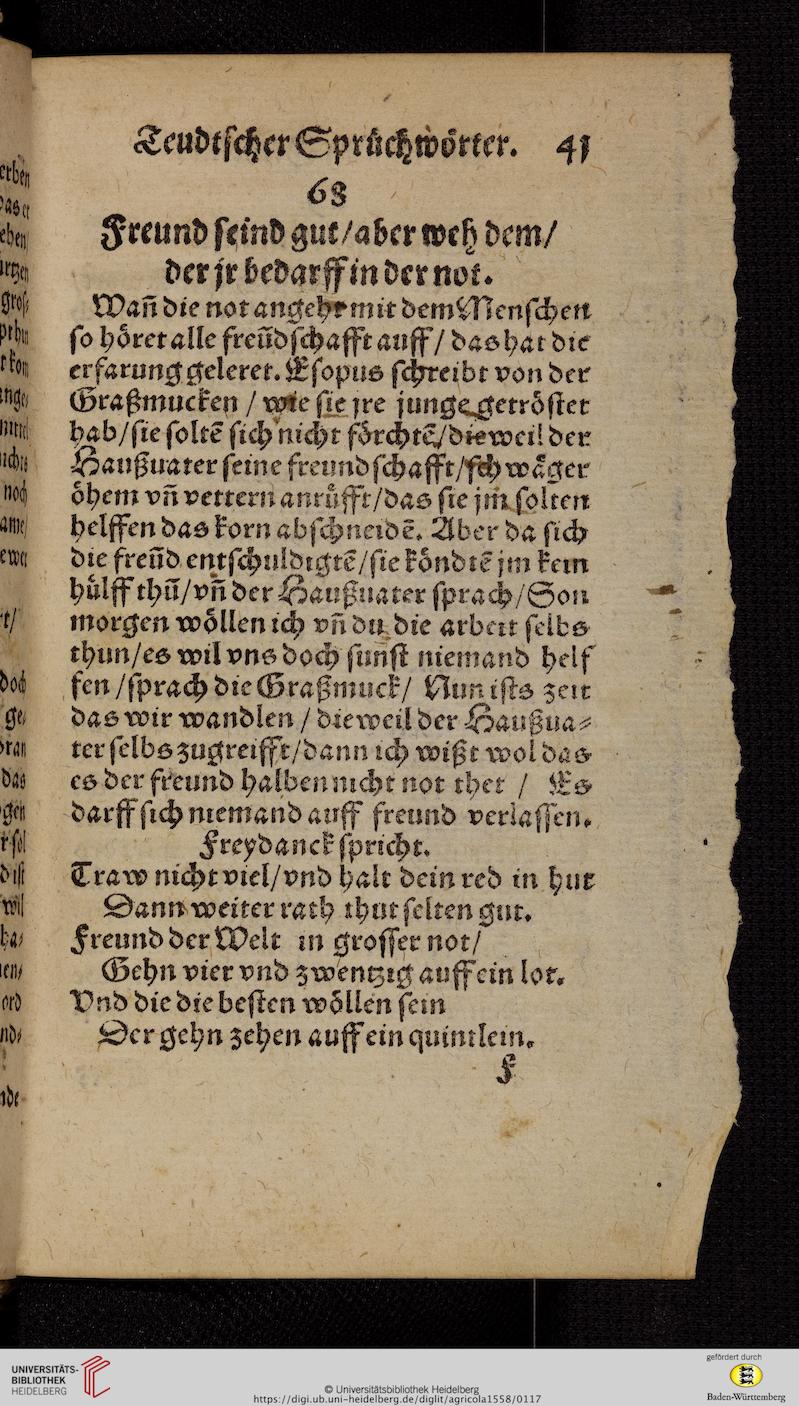 Teudtscher Sprüchwörter. 41
68
Freund seind gut/aber weh dem/
der jr bedarff in der not.
Wañ die not angehet mit dem Menschen
so höret alle freũdschafft auff/ das hat die
erfarung geleret. Esopus schreibt von der
Graßmucken / wie sie jre junge getröstet
hab/sie soltẽ sich nicht förchtẽ/dieweil der
Haußuater seine freundschafft/schwäger
öhem vñ vettern anrüfft/das sie jm solten
helffen das korn abschneidẽ. Aber da sich
die freũd entschuldigtẽ/sie köndtẽ jm kein
hülff thũ/vñ der Haußuater sprach/Son
morgen wöllen ich vñ du die arbeit selbs
thun/es wil vns doch sunst niemand helf
fen/sprach die Graßmuck/ Nun ists zeit
das wir wandlen / dieweil der Haußua⸗
ter selbs zugreifft/dann ich wißt wol das
es der freund halben nicht not thet / Es
darff sich niemand auff freund verlassen.
Freydanck spricht.
Traw nicht viel/vnd halt dein red in hut
Dann weiter rath thut selten gut.
Freund der Welt in grosser not/
Gehn vier vnd zwentzig auff ein lot.
Vnd die die besten wöllen sein
Der gehn zehen auff ein quintlein.
F
UNIVERSITÄTS-
BIBLIOTHEK
HEIDELBERG
© Universitätsbibliothek Heidelberg
https://digi.ub.uni-heidelberg.de/diglit/agricola1558/0117
gefördert durch
Baden-Württemberg